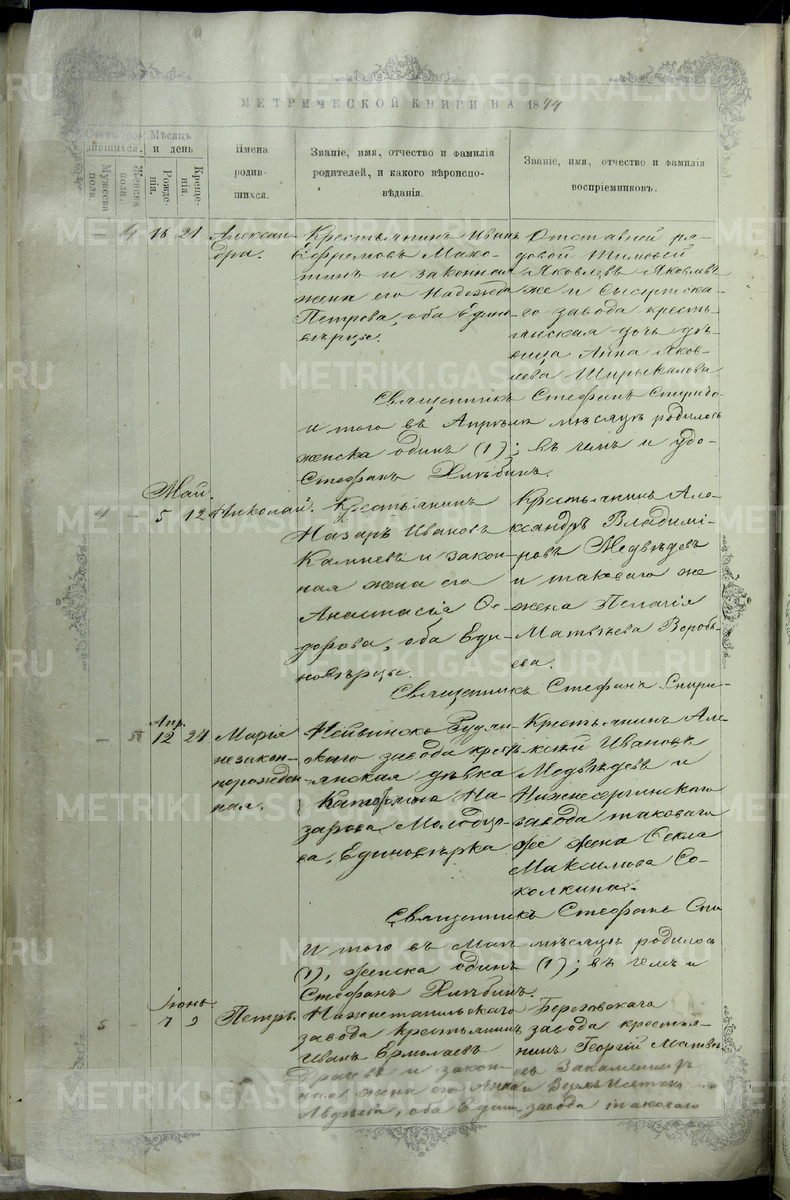 МЕТРИЧЕСКОЙ КНИГИ НА 1874
Счетъ родившихся.
Мужеска пола.
Женска пола.
Мѣсяцъ и день
Рожденія.
Крещенія.
Имена родившихся.
Званіе, имя, отчество и фамилія родителей, и какого вѣроисповѣданія.
Званіе, имя, отчество и фамилія воспріемниковъ.
— 4 18 21
Александра.
Крестьянинъ Иванъ
Ефремовъ Махо-
тинъ и законная
жена его Надежда
Петрова, оба Едино-
вѣрцы.
Отставной ря-
довой Тимофей
Яковлевъ Яковлевъ
же и Сысертска-
го завода кресть-
янская дочь дѣ-
вица Анна Яков-
лева Ширыкалова
Священникъ Стефанъ Спиридо-
И того въ Апрѣлѣ мѣсяцѣ родилось
женска одинъ (1); въ чемъ и удо-
Стефанъ Хлѣбинъ.
Май.
4 — 5 12
Николай.
Крестьянинъ
Назаръ Ивановъ
и закон-
ная жена его
Анастасія Ѳе-
дорова, оба Еди-
новѣрцы.
Крестьянинъ Але-
ксандръ Владимі-
ровъ Медвѣдевъ
и таковаго же
жена Пелагія
Матвѣева Воробь-
ева.
Священникъ Стефанъ Спири-
Апр.
— 5 12 27
Марія
незакон-
норожден-
ная.
Нейвинско Рудян-
скаго завода крест-
янская дѣвка
Катерина На-
зарова Молодцо-
ва, Единовѣрка
Крестьянинъ Але-
ксѣй Ивановъ
Медвѣдевъ и
Нижнесергинскаго
завода таковаго
же жена Ѳекла
Максимова Со-
колкина.
Священникъ Стефанъ Спи
И того въ Маѣ мѣсяцѣ родилось
(1), женска одинъ (1); въ чемъ и
Стефанъ Хлѣбинъ.
Іюнь.
5 — 7 9
Петръ.
Нижнетагильскаго
завода крестьянинъ
Иванъ Ермилаевъ
и закон-
ная жена его Анна
оба Един-
Береговскаго
завода крестья-
нинъ Георгій Матвѣ-
евъ
и Верхъ Исетск
завода таковаго
METRIKI.GASO-URAL.RU